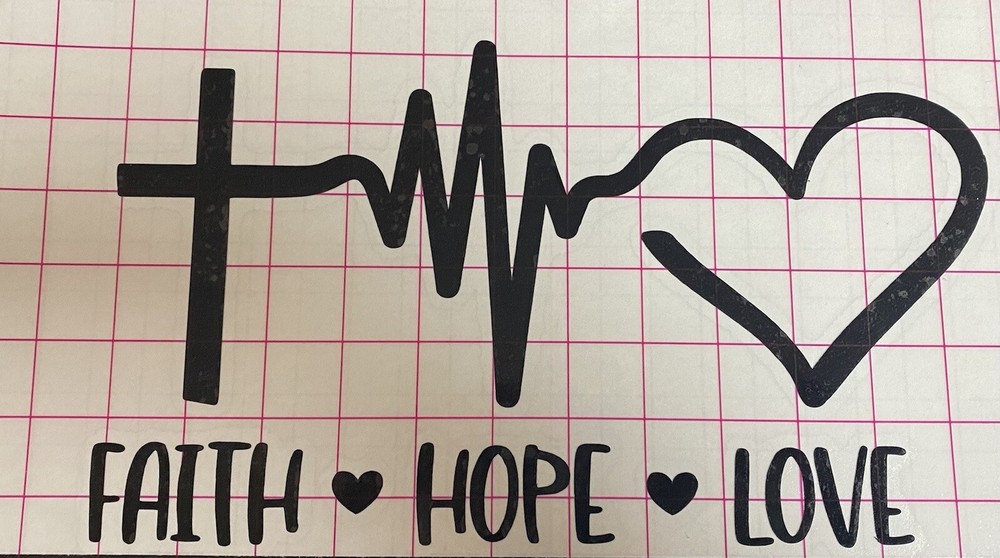 FAITH ♥ HOPE ♥ LOVE